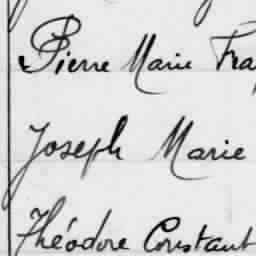 Pierre Marie Fra
Joseph Marie
Théodore Constant